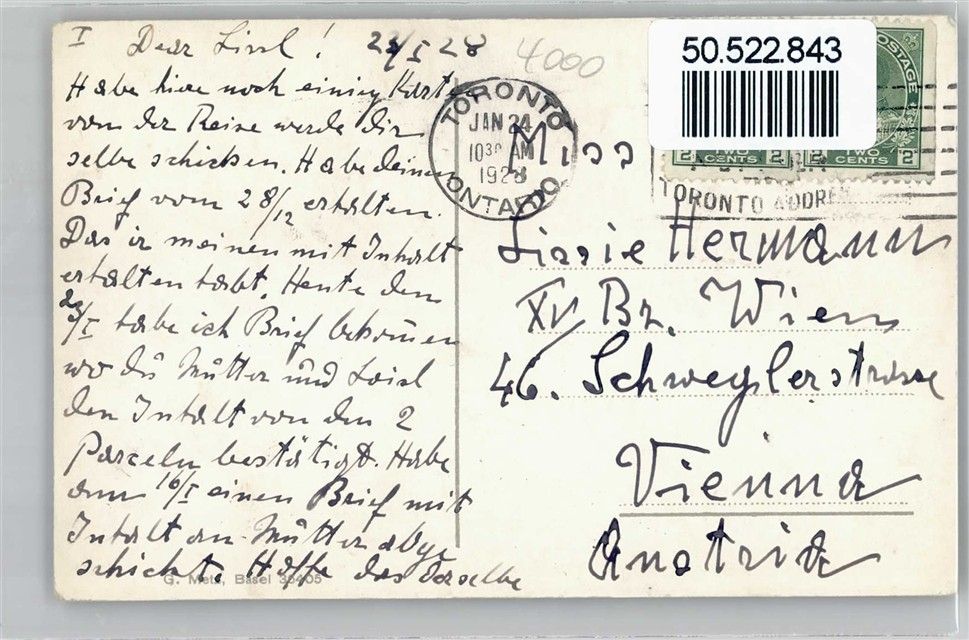 I Dear Lissl! 23/I 28
Habe hier noch einige Karten
von der Reise werde dir
selbe schicken. Habe deinen
Brief vom 28/12 erhalten.
Das ir meinen mit Inhalt
erhalten habt. Heute den
23/I habe ich Brief bekomen
wo du Mutter und Loisl
den Inhalt von den 2
Parceln bestätigt. Habe
am 16/I einen Brief mit
Inhalt an Mutter abge
schickt. Hoffe das derselbe
G. Metz, Basel 35405
4000
TORONTO
JAN 24
10 30 AM
1928
ONTARIO
50.522.843
POSTAGE
2 TWO CENTS 2
TWO CENTS 2
TORONTO ADDRE
Miss
Lissie Hermann
XV Bz. Wien
46. Schweglerstrasse
Vienna
Austria